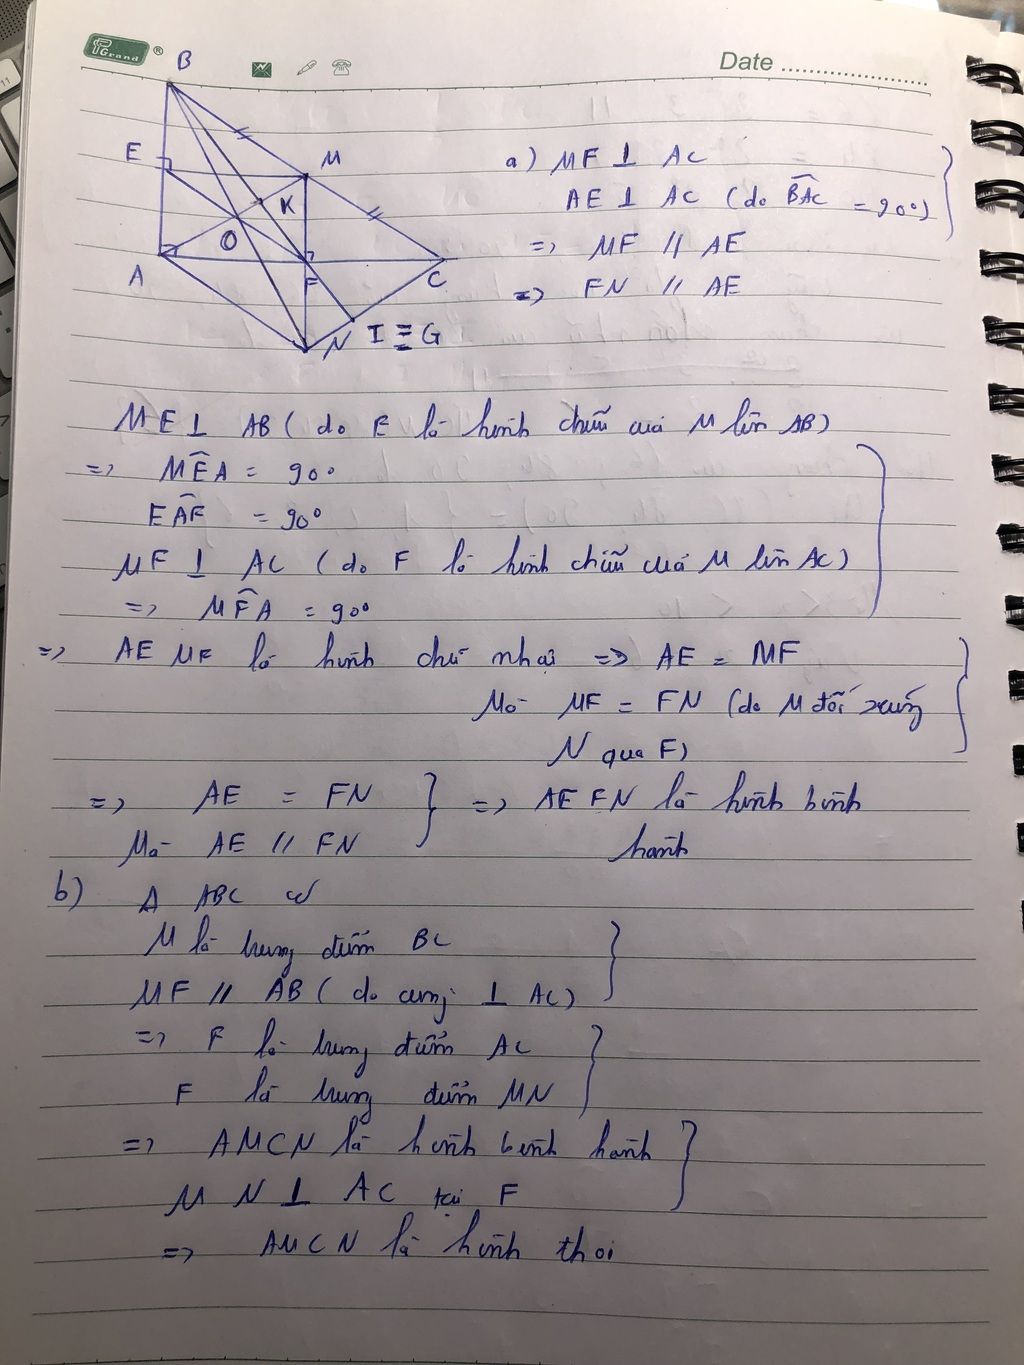 PGrand ®
Date
B
E
M
K
O
A
F
C
N I ≡ G
a) MF ⊥ AC
AE ⊥ AC (do BAC = 90°)
=> MF // AE
=> FN // AE
ME ⊥ AB (do E là hình chiếu của M lên AB)
=> MEA = 90°
EAF = 90°
MF ⊥ AC (do F là hình chiếu của M lên AC)
=> MFA = 90°
=> AEMF là hình chữ nhật => AE = MF
Mà MF = FN (do M đối xứng
N qua F)
=> AE = FN => AEFN là hình bình
Mà AE // FN hành
b) Δ ABC có
M là trung điểm BC
MF // AB (do cùng ⊥ AC)
=> F là trung điểm AC
F là trung điểm MN
=> AMCN là hình bình hành
MN ⊥ AC tại F
=> AMCN là hình thoi